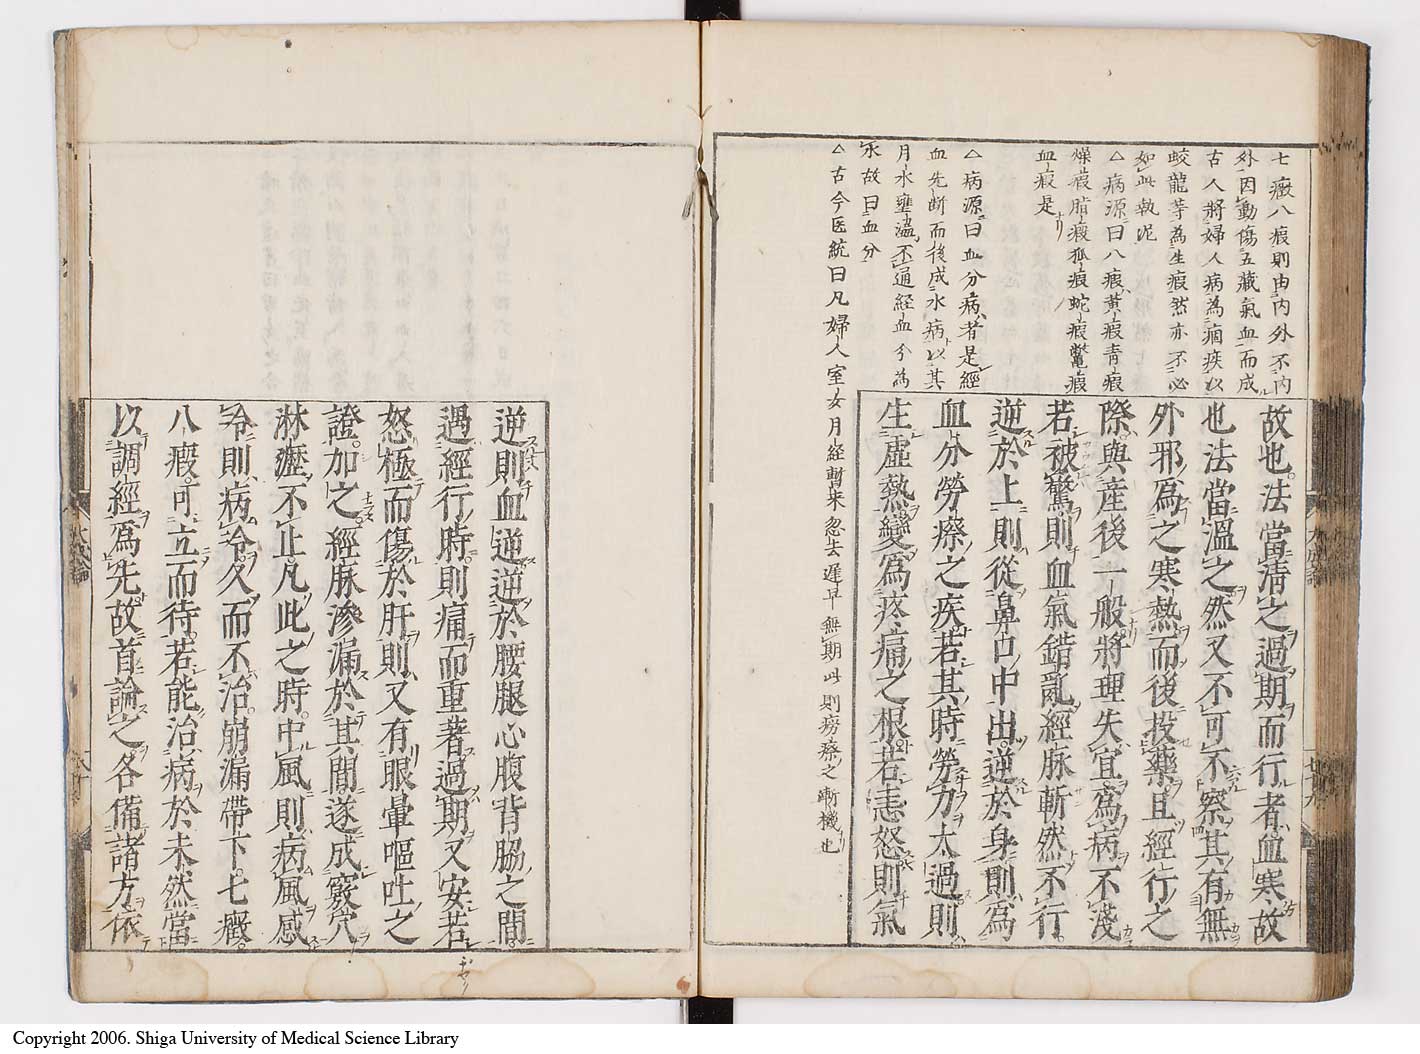 七癥八瘕則由内外不内
外因動傷五藏氣血而成
古人將婦人病為痼疾以
蛟龍等為生瘕然亦不必
如此執泥
△病源曰八瘕黄瘕青瘕
燥瘕脂瘕狐瘕蛇瘕鼈瘕
血瘕是
△病源曰血分病者是經
血先断而後成水病以其
月水壅濇不通經血分為
水故曰血分
△古今医統曰凡婦人室女月經暫来忽去遲早無期此則癆瘵之漸機也
故也法當清之過期而行者血寒故
也法當溫之然又不可不察其有無
外邪爲之寒熱而後投藥且經行之
際與產後一般將理失宜爲病不淺
若被驚則血氣錯亂經脉斬然不行
逆於上則從鼻口中出逆於身則爲
血分勞瘵之疾若其時勞力太過則
生虛熱變爲疼痛之根若恚怒則氣
逆則血逆逆於腰腿心腹背脇之間
遇經行時則痛而重著過期又安若
怒極而傷於肝則又有眼暈嘔吐之
證加之經脉滲漏於其間遂成竅穴
淋瀝不止凡此之時中風則病風感
冷則病冷久而不治崩漏帶下七癥
八瘕可立而待若能治病於未然當
以調經爲先故首論之各備諸方依
Copyright 2006. Shiga University of Medical Science Library